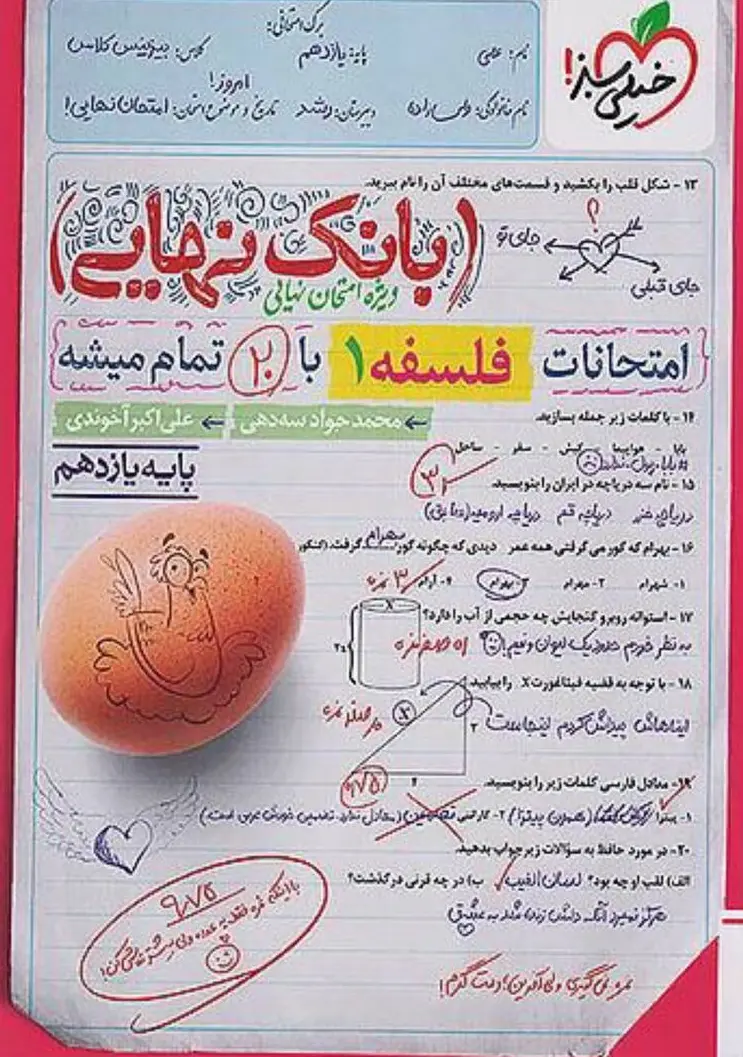 خیلی سبز!
برگ امتحانی:
نام: علی
پایه: یازدهم
کلاس: بیزینس کلاس
نام خانوادگی:
دبیرستان: رشد
تاریخ و موضوع امتحان: امروز! امتحان نهایی!
۱۳ - شکل قلب را بکشید و قسمت‌های مختلف آن را نام ببرید.
؟
جای تو
جای قبلی
(بانک نهایی)
ویژه امتحان نهایی
{امتحانات فلسفه ۱ با ۲۰ تمام میشه}
۱۴ - با کلمات زیر جمله بسازید.
محمدجواد سه‌دهی
علی‌اکبر آخوندی
بابا - هواپیما - کیش - سفر - ساحل
بابا پول ندارد
پایه یازدهم
۱۵ - نام سه دریاچه در ایران را بنویسید.
۳
دریاچه خزر دریاچه قم دریاچه ارومیه
۱۶ - بهرام که گور می‌گرفتی همه عمر دیدی که چگونه گور بهرام گرفت. (کنکور
۱- شهرام ۲- مهرام ۳- بهرام ۴- آرام
۳ نمره
۱۷ - استوانه روبرو گنجایش چه حجمی از آب را دارد؟
X
۲۴
به نظر خودم حدود یک لیوان و نیم!
۱۸ - با توجه به قضیه فیثاغورث X را بیابید.
ایناهاش پیداش کردم اینجاست
X
۲
۲
۱۹ - معادل فارسی کلمات زیر را بنویسید.
۹/۷۵
۱- پیتزا (همون پیتزا) ۲- کارتن (معادل ندارد، تضمین خودش عربی است.)
۲۰ - در مورد حافظ به سؤالات زیر جواب بدهید.
الف) لقب او چه بود؟ لسان الغیب ب) در چه قرنی درگذشت؟
هرگز نمیرد آنکه دلش زنده شد به عشق
۹/۷۵
با اینکه نمره فقط یه عدده ولی بیشتر تلاش کن!
نمره نمی‌گیری ولی آفرین! دمت گرم!